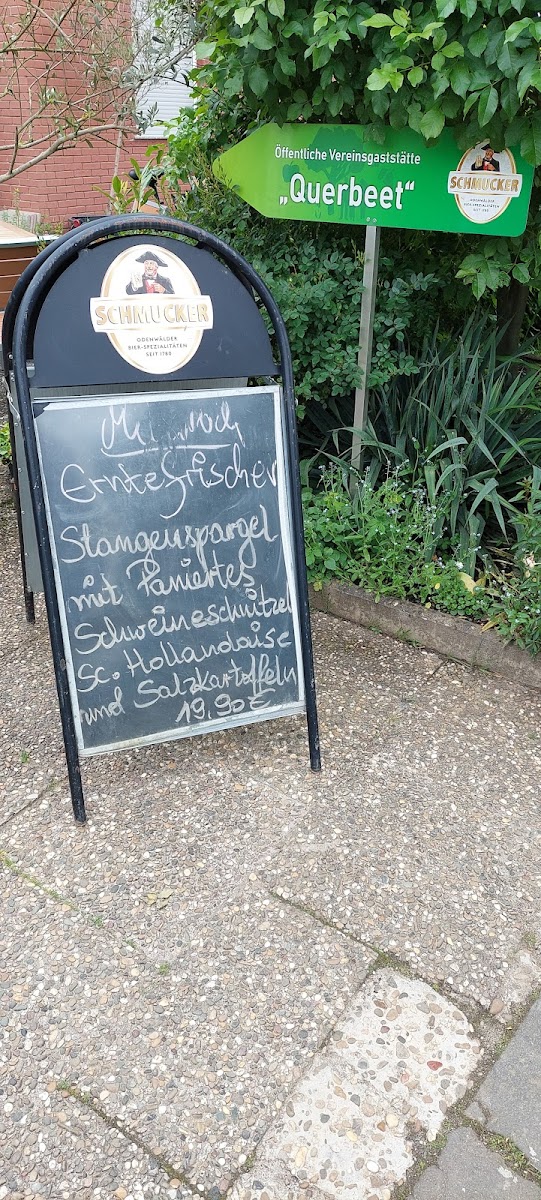 Öffentliche Vereinsgaststätte
„Querbeet“
SCHMUCKER
ODENWÄLDER
BIER-SPEZIALITÄTEN
SEIT 1780
SCHMUCKER
ODENWÄLDER
BIER-SPEZIALITÄTEN
SEIT 1780
Erntefrischer
Stangenspargel
mit Paniertes
Schweineschnitzel
Sc. Hollandaise
und Salzkartoffeln
19,90 €